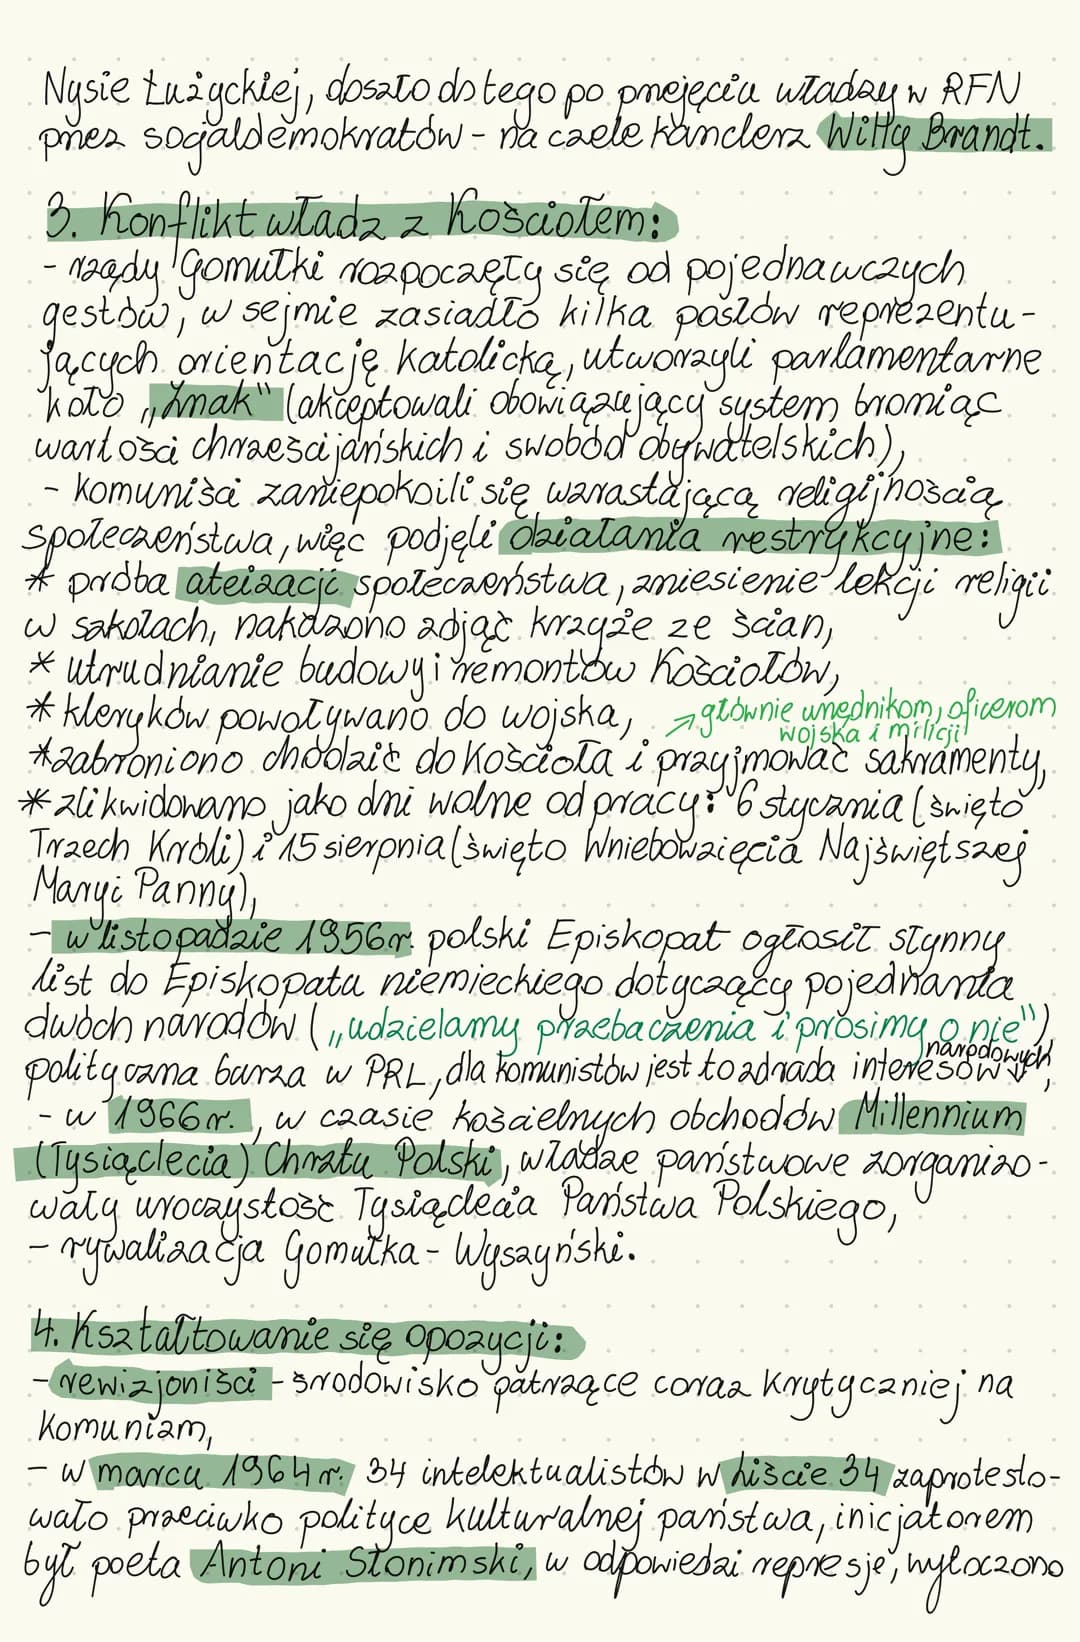 Nysie Łużyckiej, doszło do tego po przejęciu władzy w RFN
przez socjaldemokratów - na czele kanclerz Willy Brandt.
3. Konflikt władz z Kościołem:
- rządy Gomułki rozpoczęły się od pojednawczych
gestów, w sejmie zasiadło kilka posłów reprezentu-
jących orientację katolicką, utworzyli parlamentarne
koło „Znak" (akceptowali obowiązujący system broniąc
wartości chrześcijańskich i swobód obywatelskich),
- komuniści zaniepokoili się wzrastającą religijnością
społeczeństwa, więc podjęli działania restrykcyjne:
* próba ateizacji społeczeństwa, zniesienie lekcji religii
w szkołach, nakazono zdjąć krzyże ze ścian,
* utrudnianie budowy i remontów Kościołów,
* kleryków powoływano do wojska,
→ głównie urzędnikom, oficerom
wojska i milicji
* zabroniono chodzić do Kościoła i przyjmować sakramenty,
* zlikwidowano jako dni wolne od pracy: 6 stycznia (święto
Trzech Króli) i 15 sierpnia (święto Wniebowzięcia Najświętszej
Maryi Panny),
- w listopadzie 1956r. polski Episkopat ogłosił słynny
list do Episkopatu niemieckiego dotyczący pojednania
dwóch narodów („udzielamy przebaczenia i prosimy o nie")
polityczna burza w PRL, dla komunistów jest to zdrada interesów narodowych,
- w 1966 r., w czasie kościelnych obchodów Millennium
(Tysiąclecia) Chrztu Polski, władze państwowe zorganizo-
wały uroczystość Tysiąclecia Państwa Polskiego,
- rywalizacja Gomułka - Wyszyński.
4. Kształtowanie się opozycji:
- rewizjoniści - środowisko patrzące coraz krytyczniej na
komunizm,
- w marcu 1964 r. 34 intelektualistów w Liście 34 zaprotesto-
wało przeciwko polityce kulturalnej państwa, inicjatorem
był poeta Antoni Słonimski, w odpowiedzi represje, wytoczono